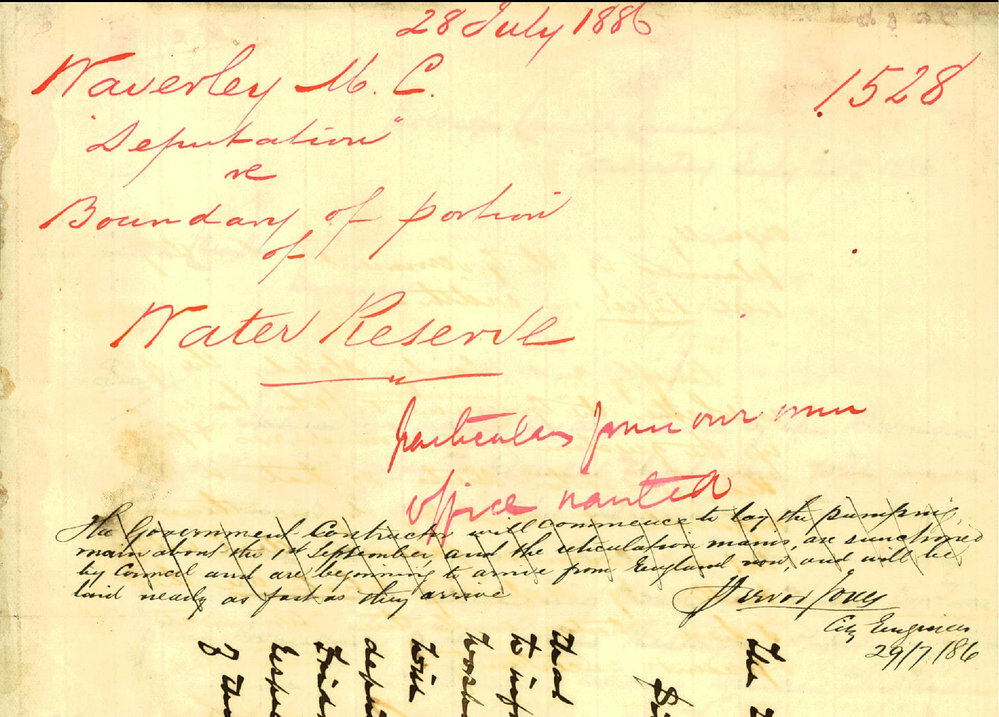 28 July 1886
Waverley M. C.
1528
"Deputation"
re
Boundary of portion
of
Water Reserve
particulars from our own
office wanted
The Government Contractor will commence to lay the pumping
main about the 1st September, and the reticulation mains, are sanctioned
by Council and are beginning to arrive from England now, and will be
laid nearly as fast as they arrive
Trevor Jones
City Engineer
29/7/86
The
that
to inf
Wor
depu